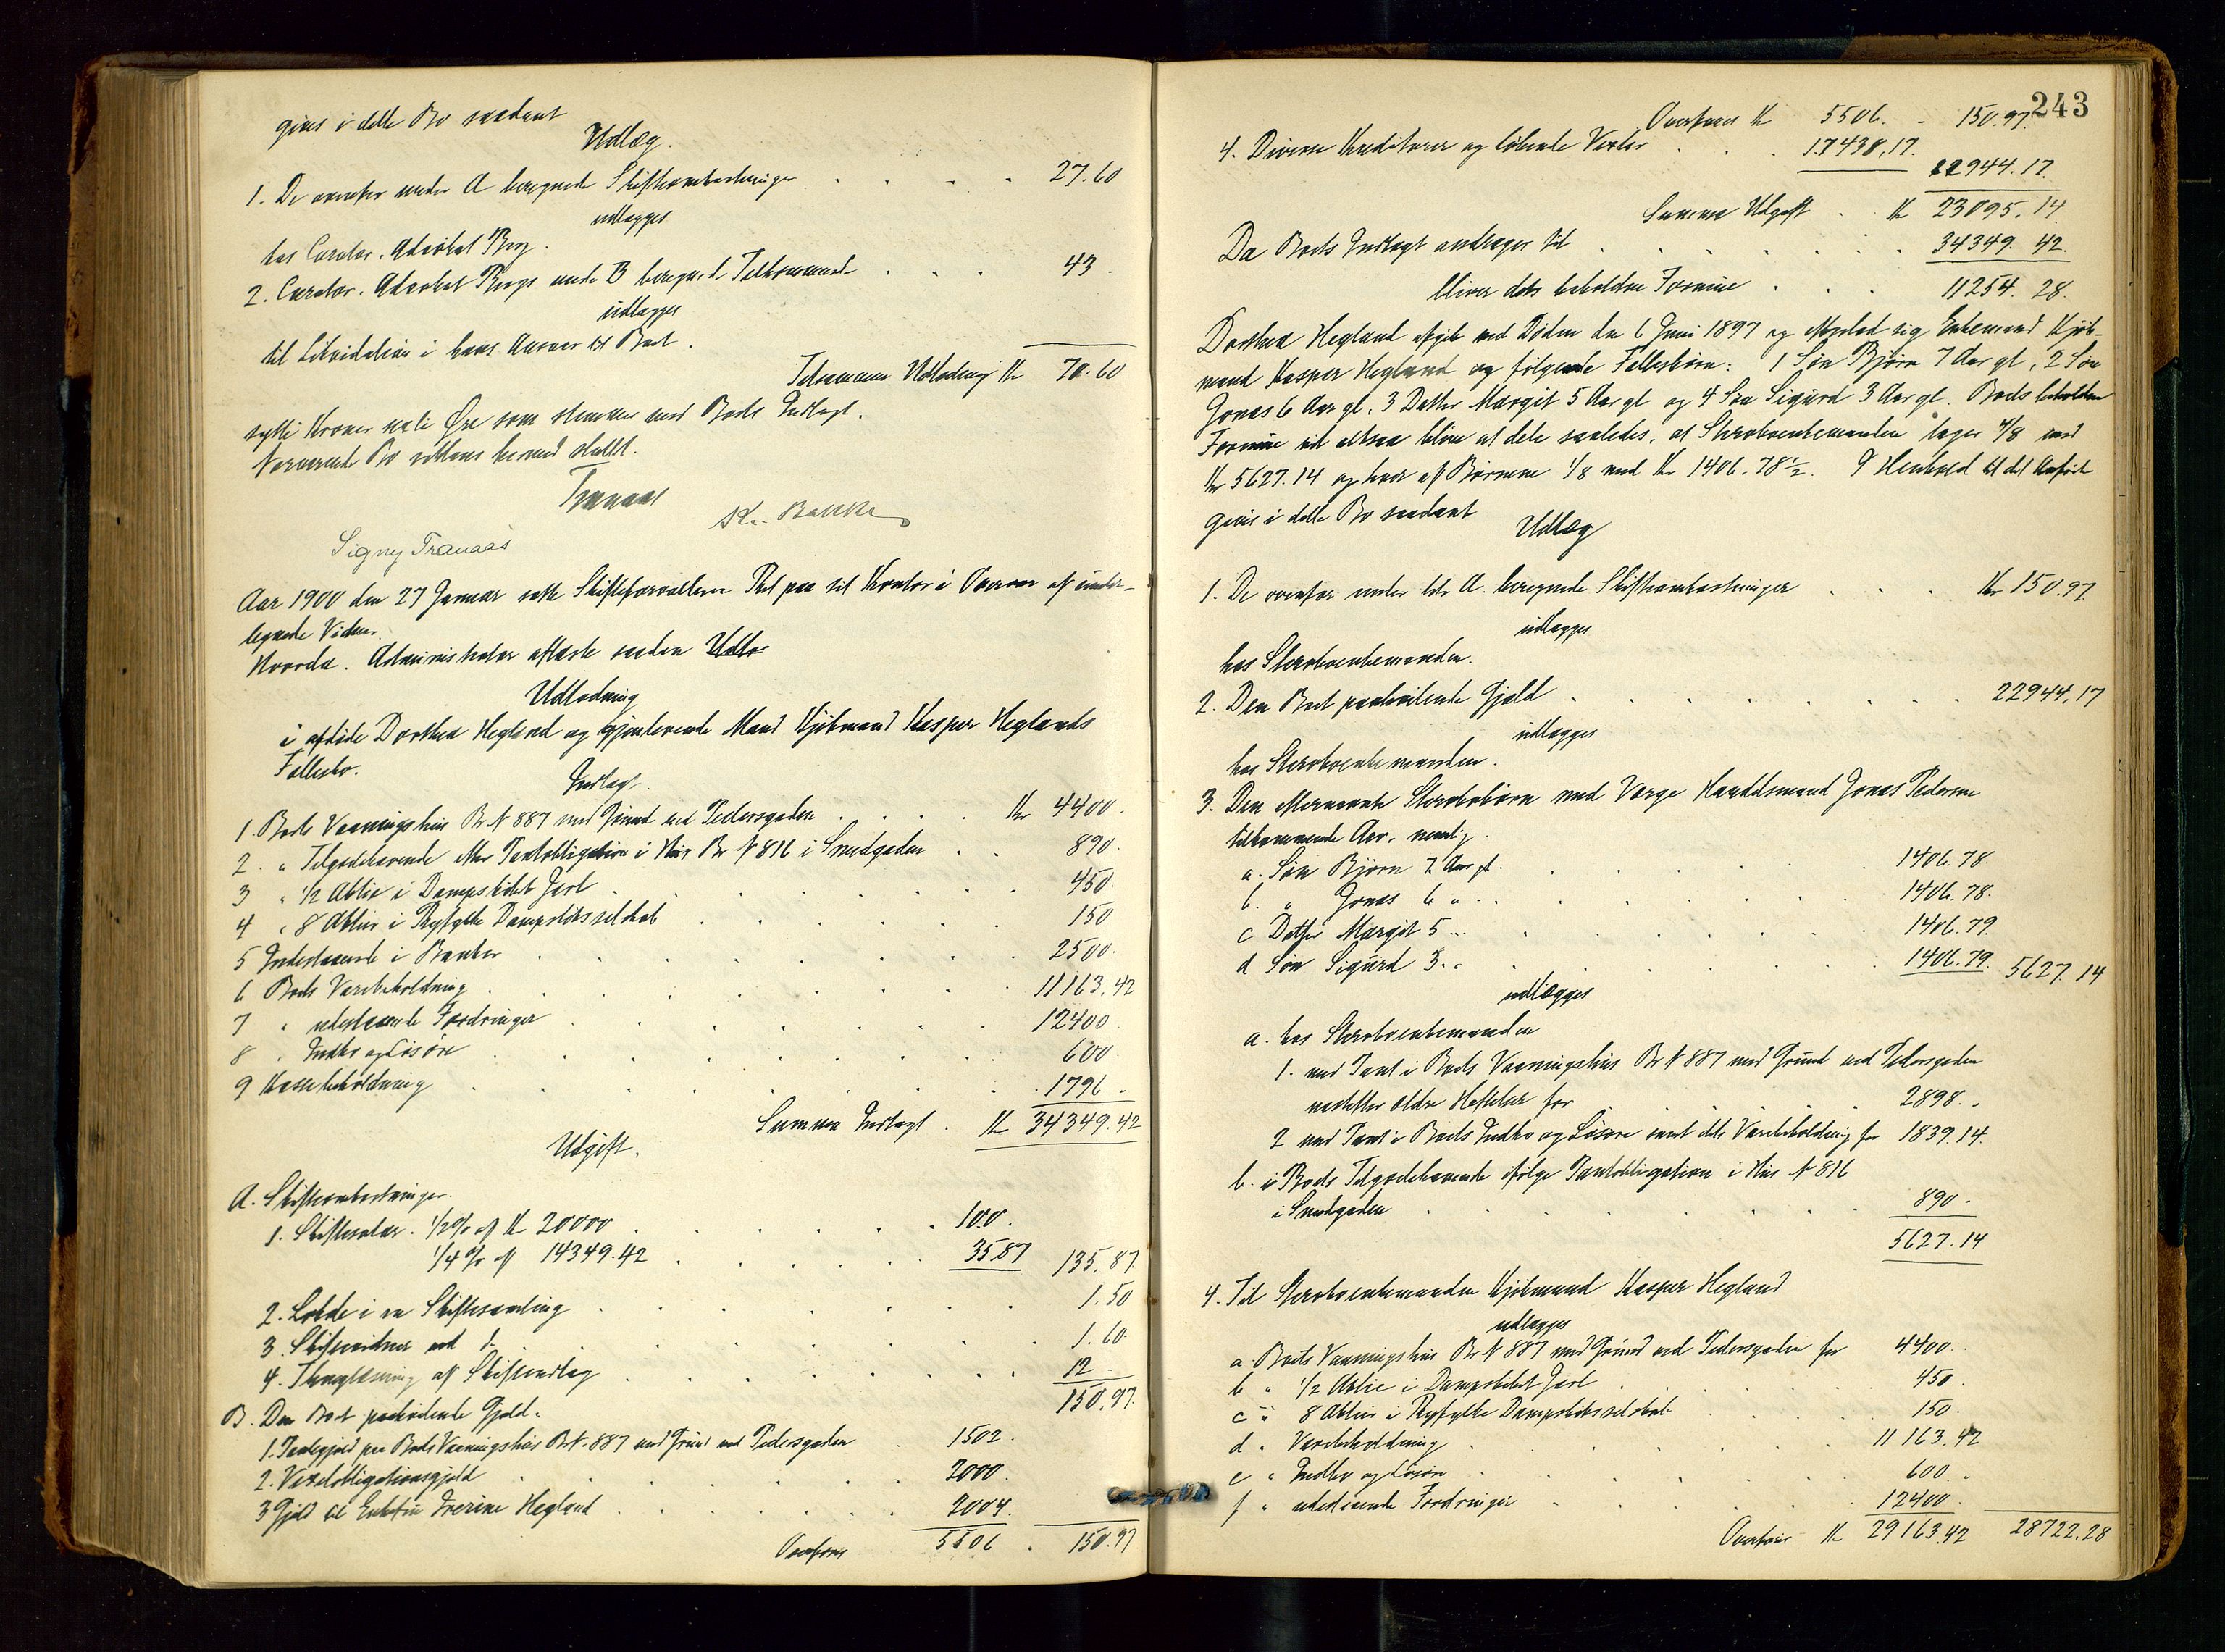 gives i dette Bo saadant
Udlæg.
1. De ovenfor under A beregnede Skifteomkostninger . . . . 27.60
udlægges
hos Curator, Advokat Berg.
2. Curator, Advokat Bergs under B beregnede Tilkommende . . . 43.
udlægges
til Likvidation i hans Ansvar til Boet.
Tilsammen Udlodning Kr 70.60
sytti Kroner seksti Øre som stemmer med Boets Indtægt.
Nærværende Bo sluttes hermed skiftet.
Tranaas
Kr. Bakke
Signy Tranaas
Aar 1900 den 27 Januar satte Skifteforvalteren Ret paa sit Kontor i Overvær af under-
tegnede Vidner.
Hvorda. Administrator aflagde saadan Udlo
Udlodning
i afdøde Dorthea Hegland og gjenlevende Mand Kjøbmand Kasper Heglands
Fællesbo.
Indtægt.
1. Boets Vaaningshus Br N 887 med Grund ved Pedersgaden . . . . Kr 4400.
2. " Tilgodehavende efter Pantobligation i Hus Br N 816 i Smedgaden . . 890.
3 " 1/2 Aktie i Dampskibet Jarl . . . . . . 450.
4 " 8 Aktier i Ryfylke Dampskibsselskab . . . . . 150
5 Indestaaende i Banken . . . . . . . 2500.
6 Boets Varebeholdning . . . . . . . 11163.42
7 " udestaaende Fordringer . . . . . . 12400
8 " Indbo og Løsøre . . . . . . . 600.
9 Kassebeholdning . . . . . . . 1796 -
Summa Indtægt . Kr 34349.42
Udgift.
A. Skifteomkostninger.
1. Skiftesalær. 1/2 % af Kr 20000 . . . . . . 100.
1/4 % af 14349.42 . . . . . 35.87 135.87
2. Lokale i en Skiftesamling . . . . . . 1.50
3. Skiftevidner ved d. . . . . . . 1.60.
4. Thinglæsning af Skifteudlæg . . . . . . 12 -
150.97.
B. Den Boet paahvilende Gjæld.
1. Pantegjæld paa Boets Vaaningshus Br N. 887 med Grund ved Pedersgaden . 1502.
2. Vexelobligationsgjæld . . . . . . 2000.
3 Gjæld til Enkefru Hegland . . . . . . 2004.
Overføres 5506 . 150.97
243
Overføres Kr 5506. - 150.97.
4. Diverse Kreditorer og løbende Vexler . . . 17438.17.
22944.17.
Summa Udgift . Kr 23095.14
Da Boets Indtægt andrager til . . . . . . . 34349.42.
bliver dets beholdne Formue . . . 11254.28.
Dorthea Hegland afgik ved Døden den 6 Juni 1897 og efterlod sig Enkemand Kjøb-
mand Kasper Hegland og følgende Fællesbørn: 1 Søn Bjørn 7 Aar gl, 2 Søn
Jonas 6 Aar gl, 3 Datter Margit 5 Aar gl og 4 Søn Sigurd 3 Aar gl. Boets beholdne
Formue vil altsaa blive at dele saaledes, at Stervboenkemanden tager 4/8 med
Kr 5627.14 og hver af Børnene 1/8 med Kr 1406.78 1/2. I Henhold til det Anførte
gives i dette Bo saadant
Udlæg
1. De ovenfor under litr A. beregnede Skifteomkostninger . . . Kr 150.97
udlægges
hos Stervboenkemanden.
2. Den Boet paahvilende Gjæld . . . . . . . . 22944.17
udlægges
hos Stervboenkemanden.
3. Den efternævnte Stervbobørn med Værge Handelsmand Jonas Pedersen
tilkommende Arv, nemlig
a. Søn Bjørn 7 Aar gl. . . . . . . 1406.78.
b. " Jonas 6 " . . . . . . . 1406.78.
c Datter Margit 5 " . . . . . . . 1406.79.
d Søn Sigurd 3 " . . . . . . . 1406.79. 5627.14
udlægges
a. hos Stervboenkemanden
1. med Pant i Boets Vaaningshus Br N 887 med Grund ved Pedersgaden
næstefter ældre Heftelser for . . . . 2898. "
2 med Pant i Boets Indbo og Løsøre samt dets Varebeholdning for 1839.14.
b. i Boets Tilgodehavende ifølge Pantobligation i Hus N 816
i Smedgaden . . . . . . . . 890 -
5627.14
4. Til Stervboenkemanden Kjøbmand Kasper Hegland
udlægges
a Boets Vaaningshus Br N 887 med Grund ved Pedersgaden for 4400.
b " 1/2 Aktie i Dampskibet Jarl . . . . . 450.
c " 8 Aktier i Ryfylke Dampskibsselskab . . . . 150.
d " Varebeholdning . . . . . . 11163.42
e " Indbo og Løsøre . . . . . . 600. "
f " udestaaende Fordringer . . . . . . 12400.
Overføres Kr 29163.42 28722.28